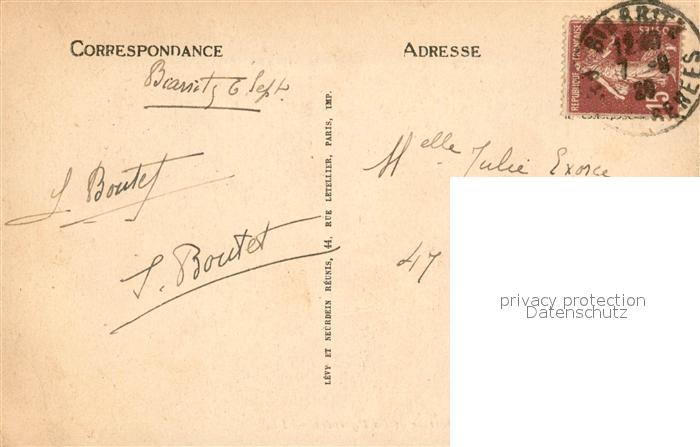 CORRESPONDANCE
ADRESSE
Biarritz 6 Sept.
J Boutet
S. Boutet
LÉVY ET NEURDEIN RÉUNIS, 44, RUE LETELLIER, PARIS, IMP.
Mlle Julie Exorce
47
privacy protection
Datenschutz
REPUBLIQUE FRANÇAISE
POSTES
15
BIARRITZ
7 -9
PYRENEES